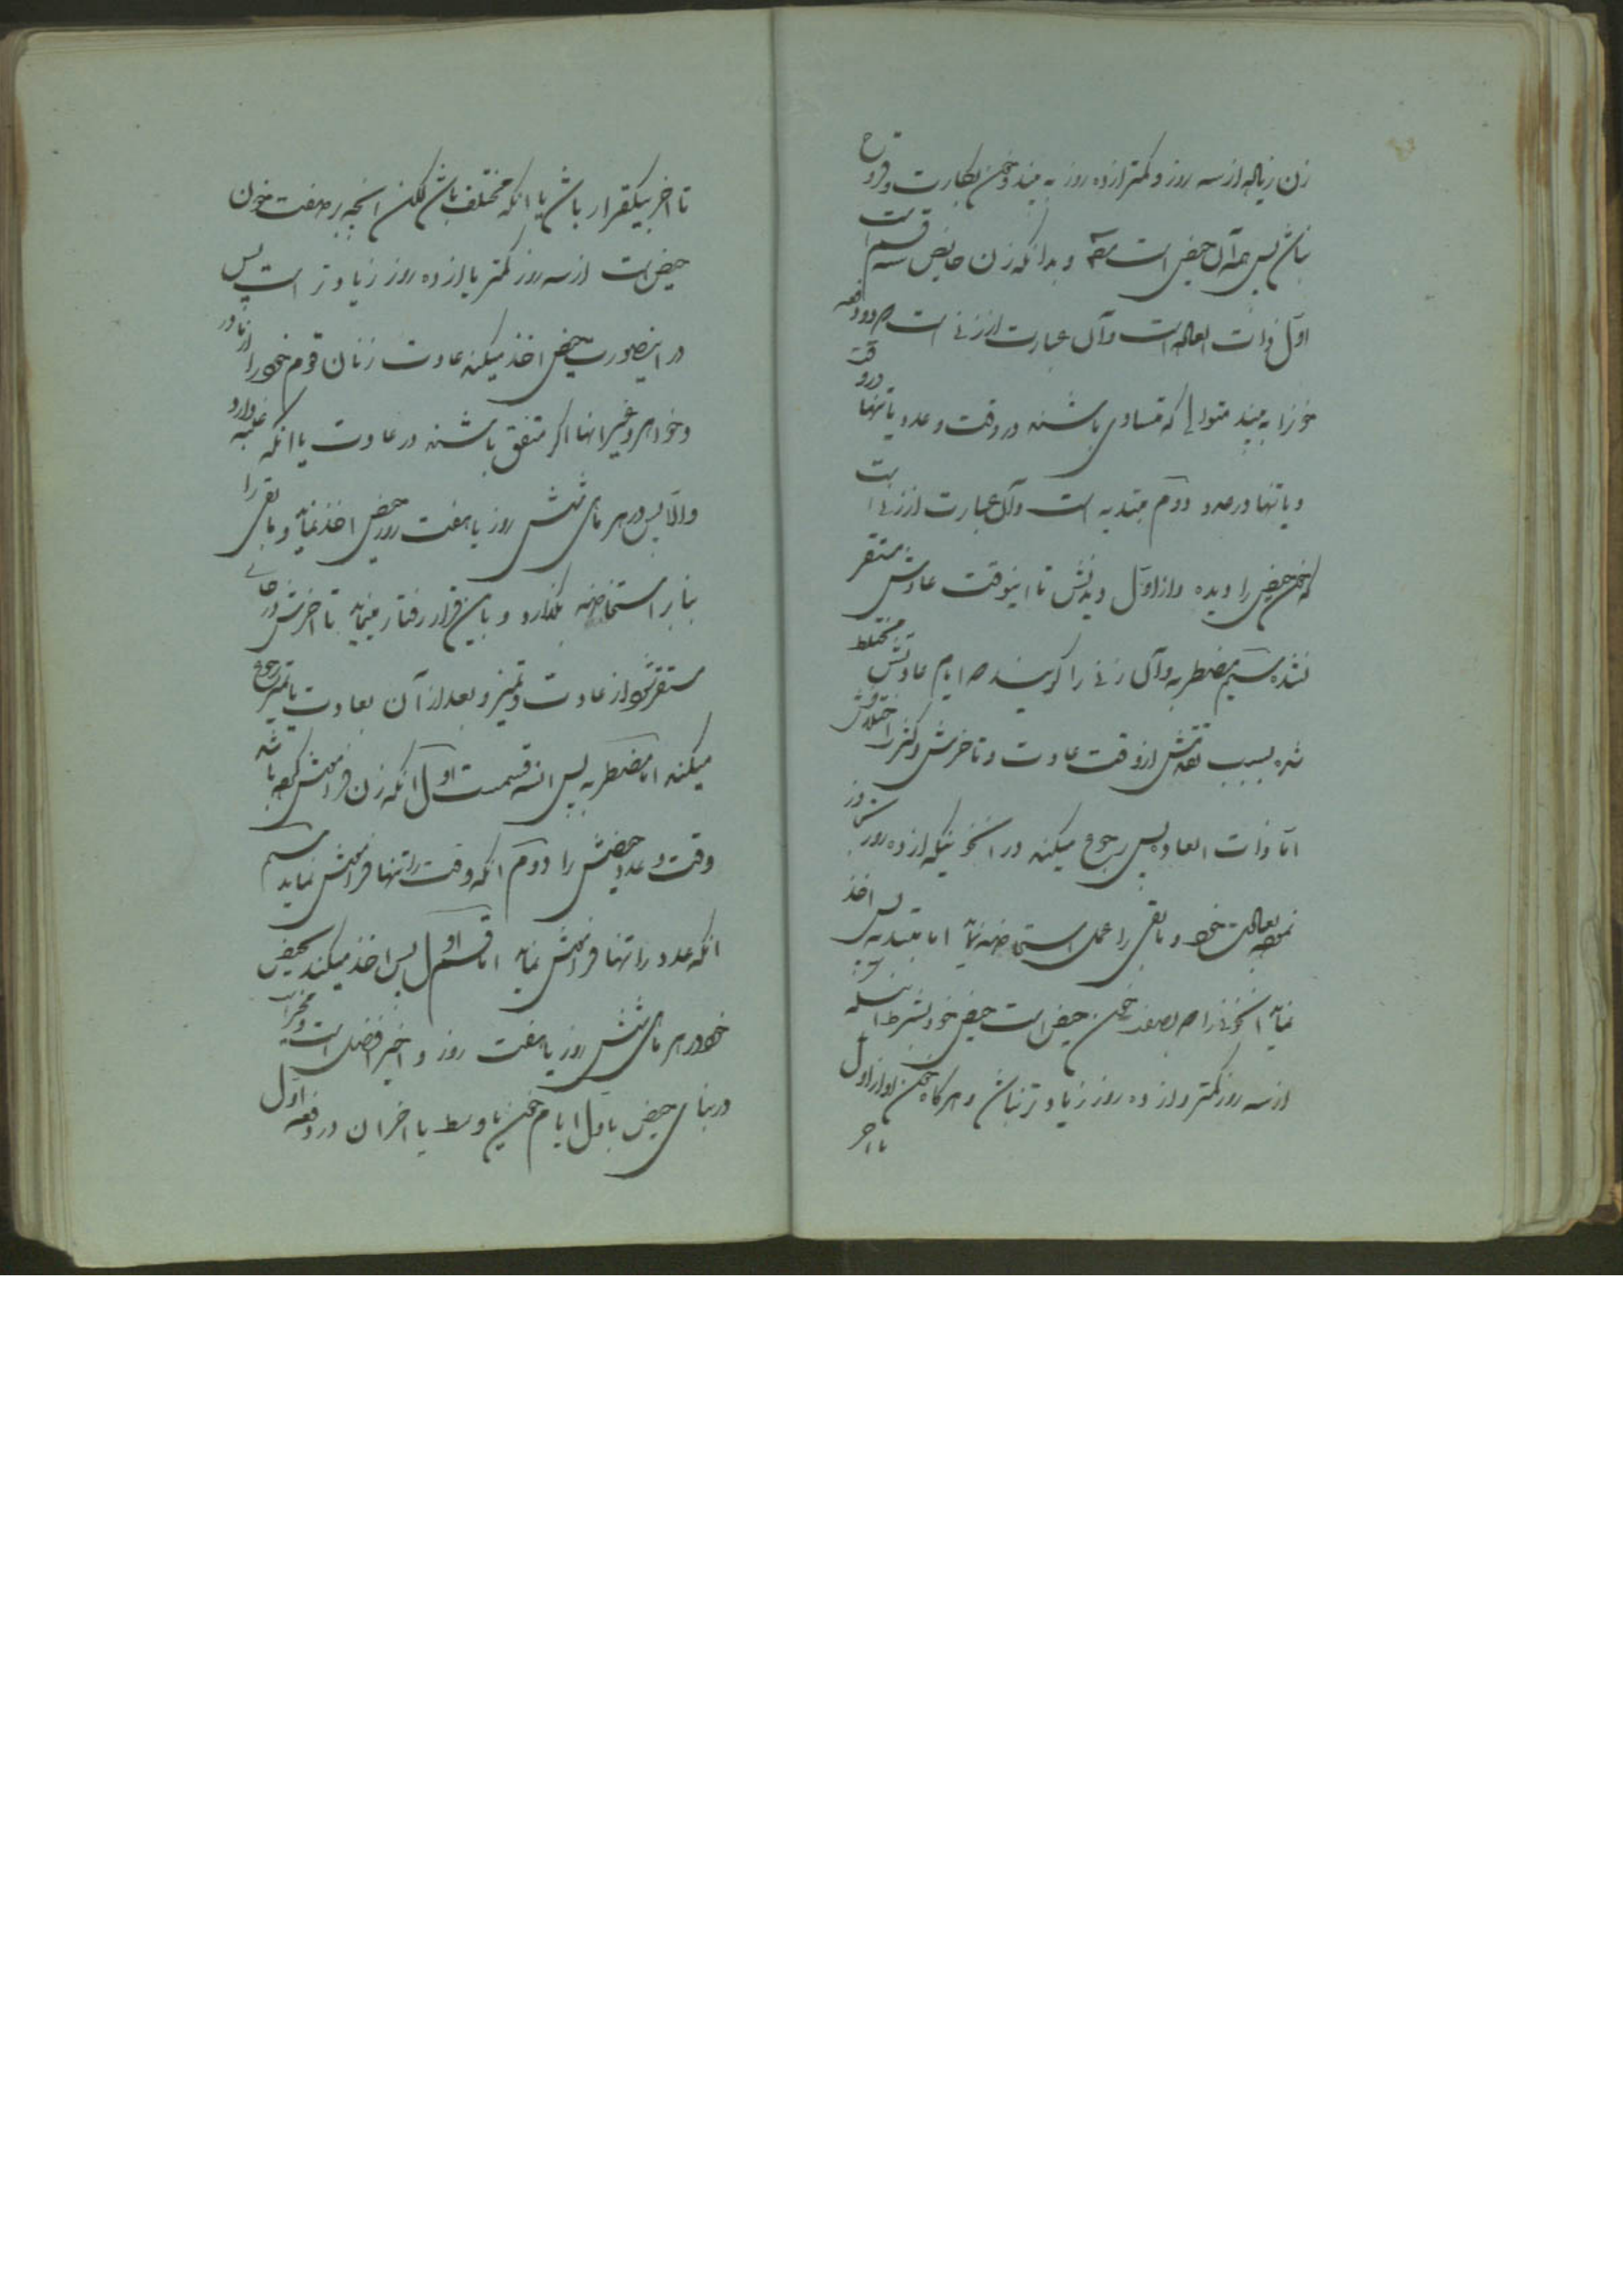 زن زیاده از سه روز و کمتر از ده روز به بیند و خون بکارت و قروح
نباش پس همه آن حیض است و بدانکه زن حایض سه قسم است
اول ذات العاده است و آن عبارت از زنی است دو دفعه
خونرا به بیند متوالی که متساوی باشند در وقت و عدد یا تنها در وقت
و یا تنها در عدد دوم مبتدیه است و آن عبارت از زنی است
که خون حیض را دیده و از اول دیدنش تا اینوقت عادتش مستقر
نشده سیم مضطربه و آن زنی را گویند ایام عادتش مختلط
شده بسبب تقدمش از وقت عادت و تاخرش و کثرة اختلافش
اما ذات العاده پس رجوع میکند در انخونیکه از ده روز
نموده بعادت خود و باقی را عمل استحاضه نماید اما مبتدیه پس اخذ
نماید انخونی را بصفت خون حیض است حیض خود بشرط اینکه
از سه روز کمتر و از ده روز زیادتر نباش و هر گاه خون او از اول
تا اخر
تا اخر بیکقرار باش یا انکه مختلف باش لکن انچه بر صفت خون
حیض است از سه روز کمتر یا از ده روز زیادتر است پس
در اینصورت حیض اخذ میکند عادت زنان قوم خود را از مادر
و خواهر و غیر انها اکر متفق باشند در عادت یا انکه غلبه دارد
والا پس در هر ماهی شش روز یا هفت روز حیض اخذ نماید و باقی را
بنا بر استحاضه بگذارد و باین قرار رفتار مینماید تا اخرش در جائی
مستقر شود از عادت و تمیز و بعد از آن بعادت یا تمیز رجوع
میکند اما مضطربه پس انسه قسمت اول انکه زن فراموش کرده باشد
وقت و عدد حیضش را دوم انکه وقت را تنها فراموش نماید سیم
انکه عدد را تنها فراموش نماید اما قسم اول پس اخذ میکند حیض
خود در هر ماهی شش روز یا هفت روز و اخیر افضل است و مخیر است
در بنای حیض باول ایام خون یا وسط یا اخر ان در دفعه اول